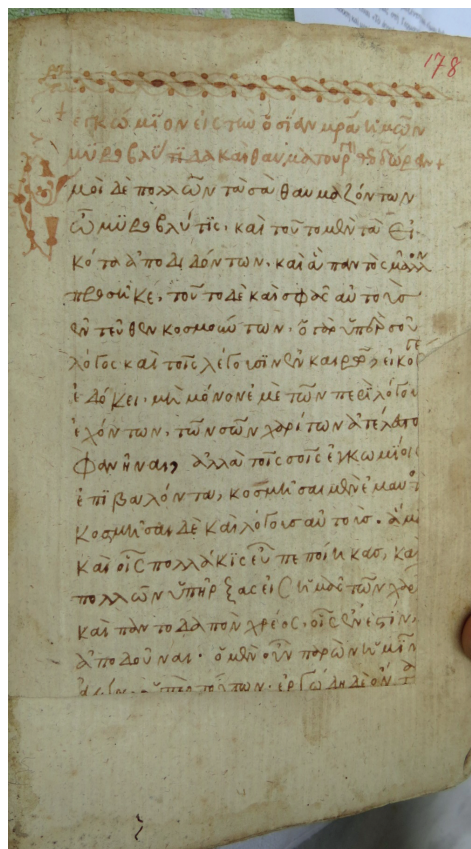 178
ἐγκώμϊον εἰς τὸν ὅσϊον
μυροβλύτϊδα καὶ θαυματουργὸν θεοδώραν +
μοι δὲ πολλῶν τὰ σὰ θαυμαζόντων
ὦ μυροβλύτϊς, καὶ τοῦτο μὲν τὰ εἰ
κότα ἀποδιδόντων, καὶ παντὸς μᾶλλον
προσῆκε, τοῦτο δὲ καὶ σφᾶς αὐτοὺς
ἐντεῦθεν κοσμούντων. ὁ γὰρ ὑπὲρ σοῦ
λόγος καὶ τοῖς λέγουσϊν ἐν καιρῷ, εἰκότ
ἐδόκει, μὴ μόνον ἐμὲ τῶν περὶ λόγου
ἐχόντων, τῶν σῶν χαρίτων ἀπέλαυτο
φανῆναι, ἀλλὰ τοῖς σοῖς ἐγκωμίοις
ἐπϊβαλόντα, κοσμῆσαι μὲν ἐμαυτὸ
κοσμῆσαι δὲ καὶ λόγους αὐτοὺς. ἅμ
καὶ οἷς πολλάκϊς εὖ πεποίηκας, καὶ
πολλῶν ὑπῆρξας εἰς ἡμᾶς τῶν χαρ
καὶ παντοδαπὸν χρέος, οἷς ἔνεστϊν,
ἀποδοῦναι. ὁ μὲν οὖν παρὼν ἡμῖν
ὑπὲρ τούτων. ἐργώδη δὲ ὂν